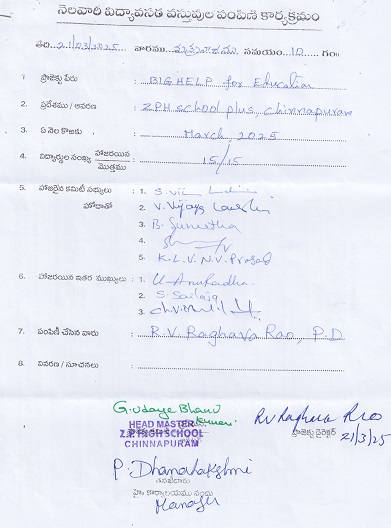 నెలవారి విద్యావసతి వస్తువుల పంపిణీ కార్యక్రమం
తేది: 21/03/2025 వారము శుక్రవారము సమయం: 10 గం
1. ప్రాజెక్టు పేరు : BIG HELP for Education
2. ప్రదేశము / ఆవరణ : ZPH School plus, Chinnapuram
3. ఏ నెల కొఱకు : March, 2025
4. విద్యార్థుల సంఖ్య హాజరయిన / మొత్తము : 15/15
5. హాజరైన కమిటీ సభ్యులు హోదాతో : 1.
2. V. Vijaya Lakshmi
3. B. Sunitha
4.
5. K.L.V.N.V. Prasad
6. హాజరయిన ఇతర ముఖ్యులు : 1. U Anuradha
2. S. Sailaja
3.
7. పంపిణీ చేసిన వారు : R.V. Raghava Rao, P.D
8. వివరణ / సూచనలు :
G. Udaya Bhanu Kumari
HEAD MASTER
Z.P. HIGH SCHOOL
CHINNAPURAM
RV Raghava Rao
ప్రాజెక్టు డైరెక్టర్
21/3/25
P. Dhanalakshmi
తనిఖీదారు
హైం కార్యాలయము నందు
Manager